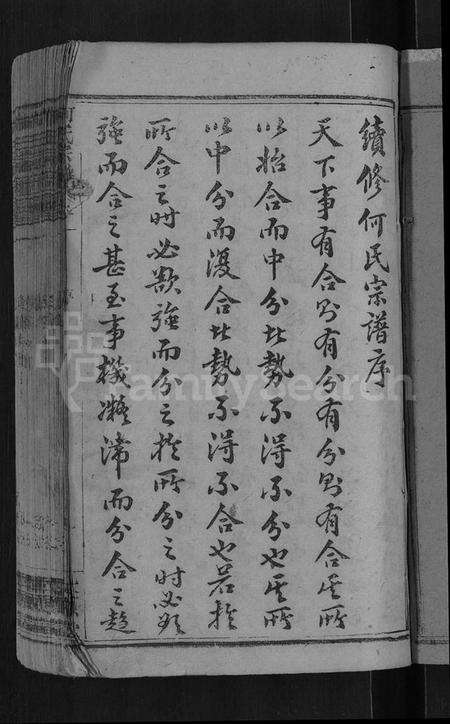 續修何氏宗譜序
天下事有合則有分有分則有合其所
以始合而中分者勢不得不分也其所
以中分而漫合者勢不得不合也若於
所合之時必欲強而分之於所分之時必欲
強而合之甚至事機凝滯而分合之趨
FamilySearch